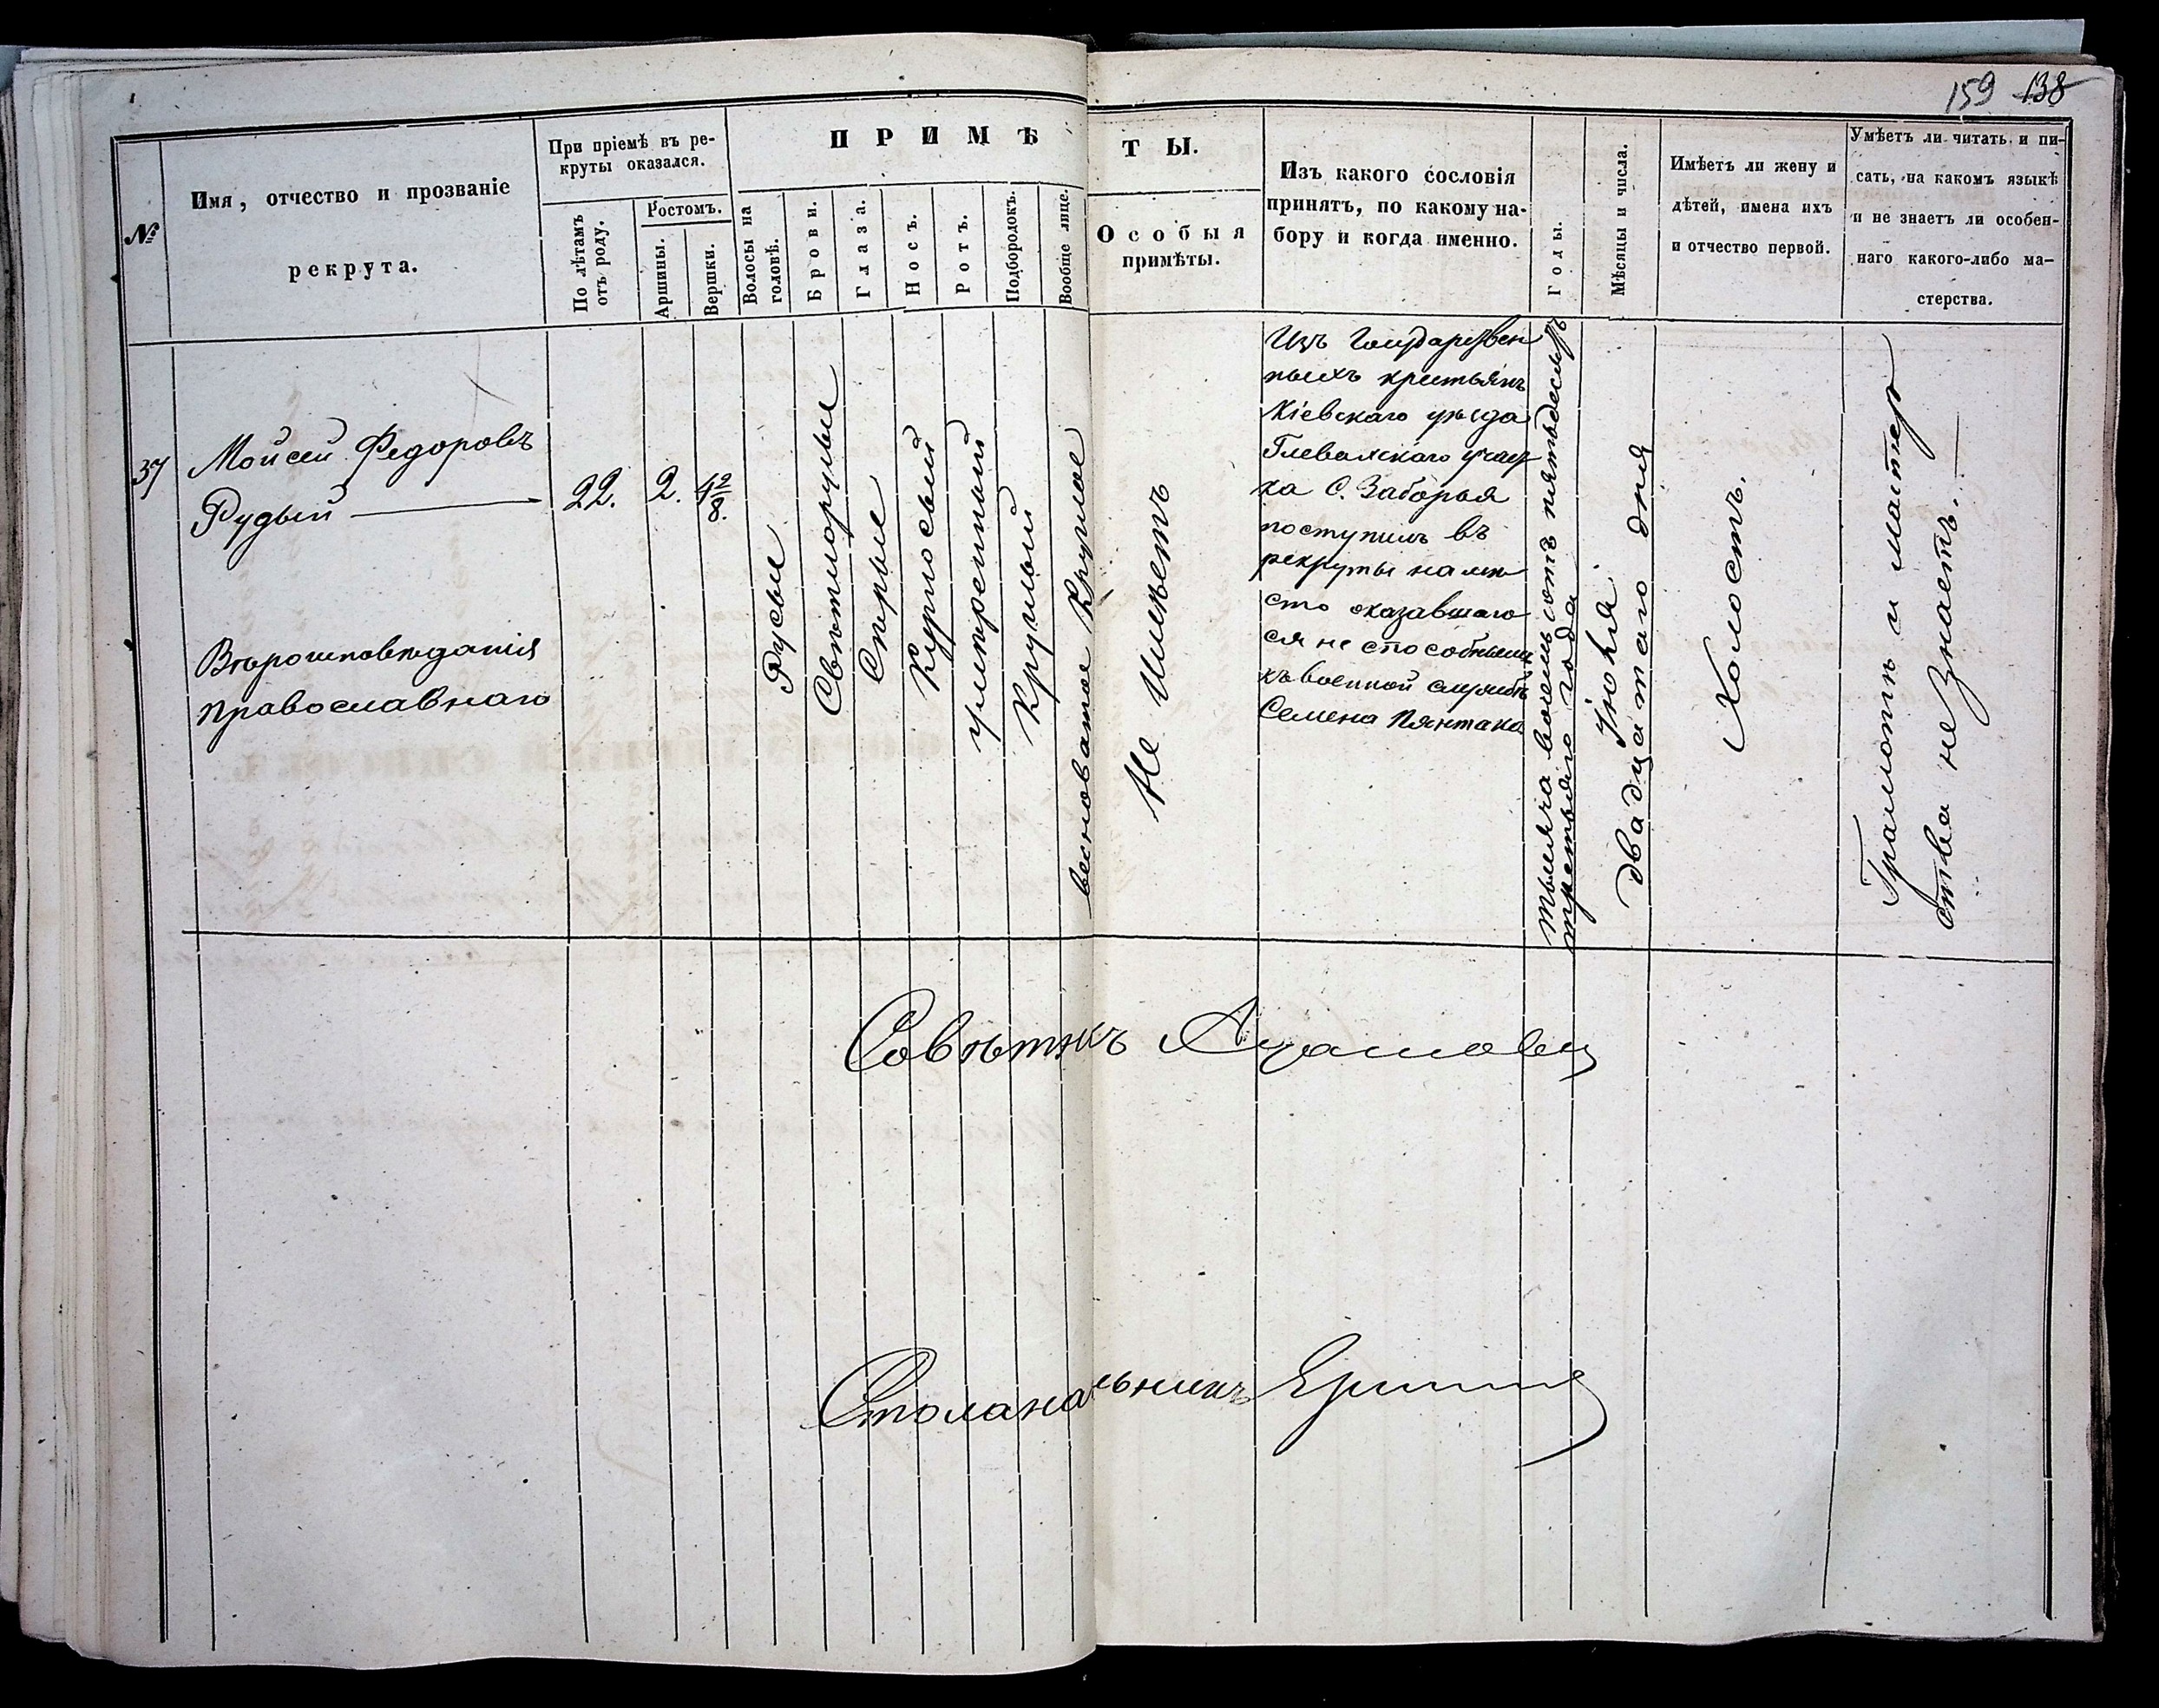 159 138
№
Имя, отчество и прозваніе
рекрута.
При пріемѣ въ ре-
круты оказался.
По лѣтамъ
отъ роду.
Ростомъ.
Аршины.
Вершки.
ПРИМѢТЫ.
Волосы на
головѣ.
Брови.
Глаза.
Носъ.
Ротъ.
Подбородокъ.
Вообще лице.
Особыя
примѣты.
Изъ какого сословія
принятъ, по какому на-
бору и когда именно.
Годы.
Мѣсяцы и числа.
Имѣетъ ли жену и
дѣтей, имена ихъ
и отчество первой.
Умѣетъ ли читать и пи-
сать, на какомъ языкѣ
и не знаетъ ли особен-
наго какого-либо ма-
стерства.
37
Мойсей Федоровъ
Рудый
Вѣроисповѣданія
православнаго
22.
2.
4 2/8.
Русые
Свѣтлорусые
Сѣрые
Курносый
умѣренный
Круглый
весноватое Круглое
Не Имѣетъ
Изъ Государствен
ныхъ крестьянъ
Кіевскаго уѣзда
Глевахскаго участ
ка С. Заборья
поступилъ въ
рекруты на мѣ
сто оказавшаго
ся не способнымъ
къ военной службѣ
Семена
тысяча восемьсотъ пятьдесятъ
третьяго года
Іюня
двадцатаго дня
Холостъ.
Грамотѣ и мастер
ства не Знаетъ.
Совѣтникъ
Столоначальникъ